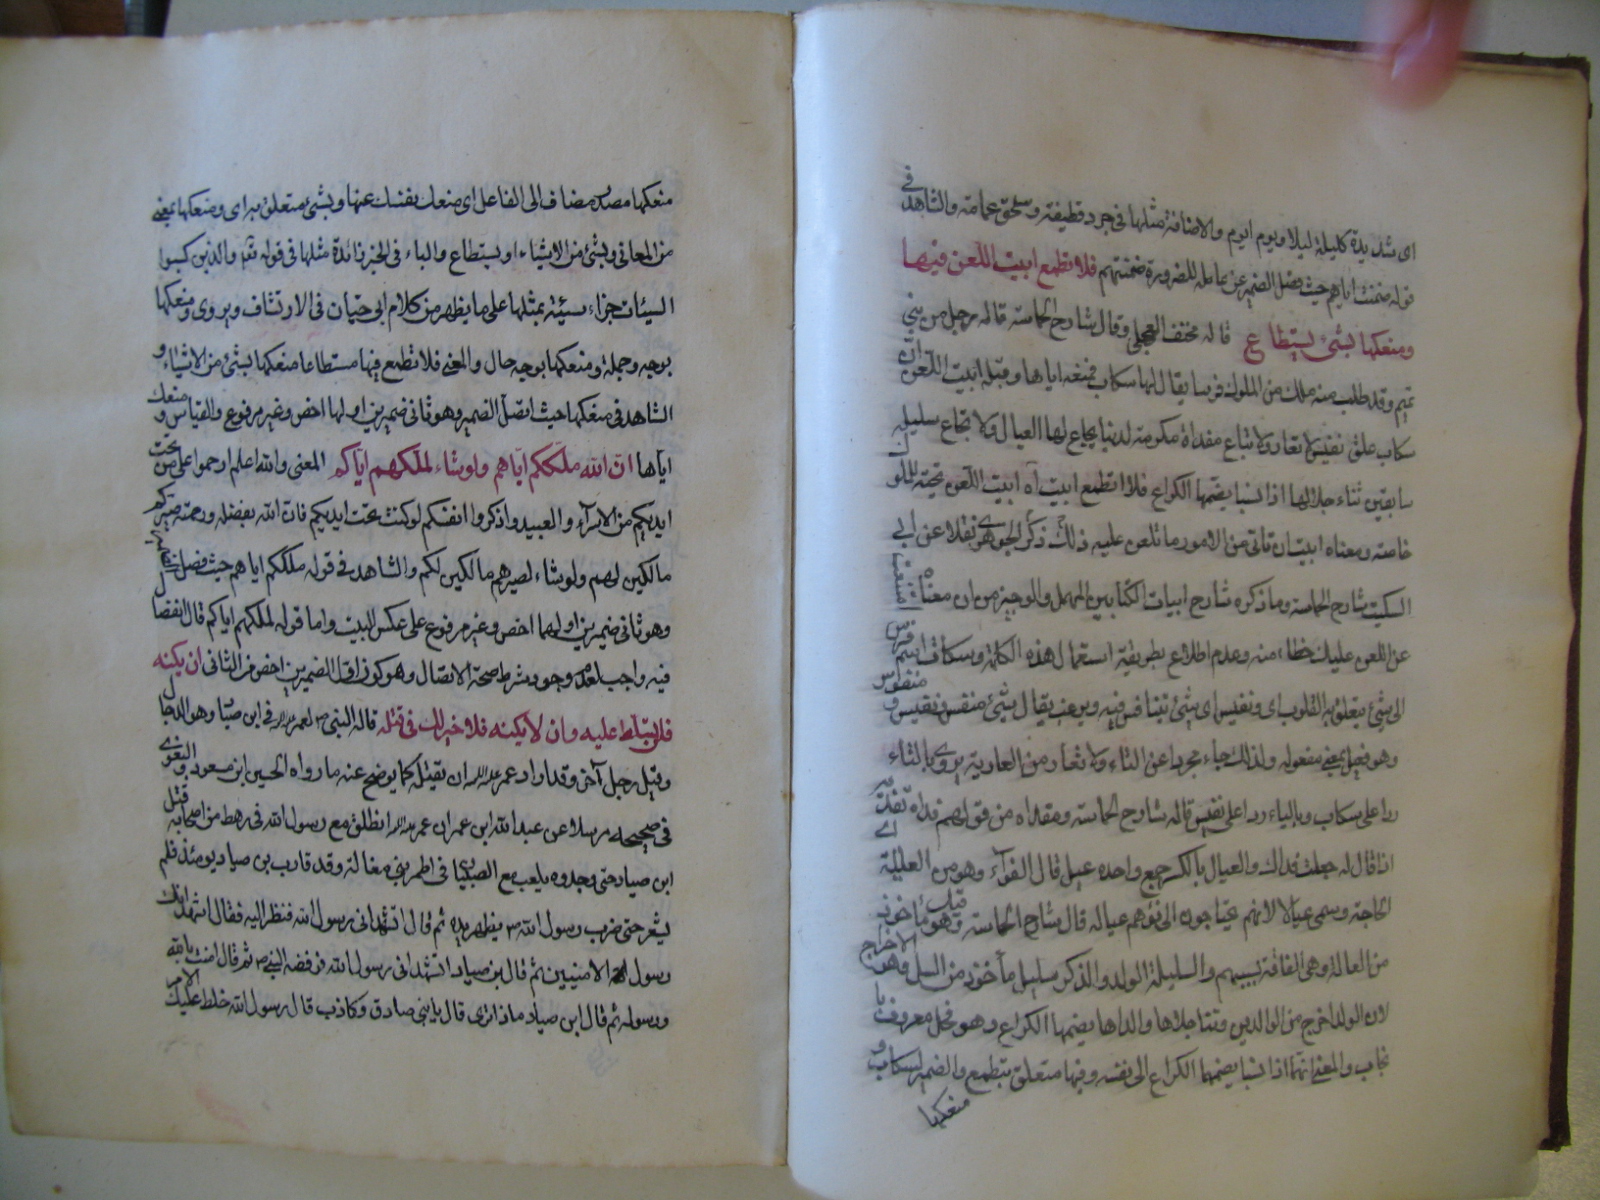 اى شديدة كليلة ليلاء ويوم ايوم والاضافة مثلها فى جرد قطيفة وسحق عمامة والشاهد فى
قوله ضمنت اياهم حيث فصل الضمير عن عامله للضرورة ضمنتهم فلا تطمع ابيت اللعن فيها
ومنعكها بشئ يستطاع قاله محنف العجلى وقال شارح الحماسة قاله رجل من بنى
تميم وقد طلب منه ملك من الملوك فرسا يقال لها سكاب فمنعه اياها وقبله ابيت اللعن ان
سكاب علق نفيس لا تعار ولا تباع مفداة مكرمة لدينا يجاع لها العيال ولا تجاع سليلة
سابقين تناجلاها اذا نسبا يضمهما الكراع فلا تطمع ابيت اه ابيت اللعن تحية للملوك
خاصة ومعناه ابيت ان تاتى من الامور ما تلعن عليه ذلك ذكر الجوهرى نقلا عن ابى
السكيت شارح الحماسة وما ذكره شارح ابيات الكتابين المهمل والوجيز من ان معناه امتنعت
عن اللعن عليك خطاء منه وعدم اطلاع بطريقة استعمال هذه الكلمة وسكاب اسم فرس
الى شئ يتعلق به القلوب اى ونفيس اى شئ يتنافس فيه ويرغب يقال شئ منفس ونفيس ومنفوس
وهو فعيل بمعنى مفعول ولذلك جاء مجردا عن التاء ولا تعار من العارية يروى بالتاء
ردا على سكاب وبالياء ردا على نفيس قاله شارح الحماسة ومفداه من قولهم فداه تفدية
اذا قال له جعلت فداك والعيال بالكسر جمع واحده عيل قال الفراء وهو من العيلة اى
الحاجة وسمى عيالا لانهم يحتاجون الى نؤهم عياله قال شارح الحماسة وهو مأخوذ
من العالة وهى الفاقة نسبهم والسليلة الولد والذكر سليل مأخوذ من السل وهو الاخراج
لان الولد اخرج من الوالدين وتناجلاها والداها يضمها الكراع وهو فحل معروف با
نجاب والمعنى انهما اذا نسبا يضمهما الكراع الى نفسه وفيها متعلق بتطمع والضمير لسكاب و
منعكها
منعكها مصدر مضاف الى الفاعل اى منعك بنفسك عنها وبشئ متعلق به اى ومنعكها بمعنى
من المعانى وبشئ من الاشياء او يستطاع والباء فى الخبر زائدة مثلها فى قوله تعم والذين كسبوا
السيئات جزاء سيئة بمثلها على ما يظهر من كلام ابى حيان فى الارتشاف ويروى ومنعكها
بوجه وجملة ومنعكها بوجه حال والمعنى فلا تطمع فيها مستطاعا منعكها بشئ من الاشياء و
الشاهد فى منعكها حيث اتصل الضمير وهو ثانى ضميرين اولها اخص وغير مرفوع والقياس منعك
اياها ان الله ملككم اياهم ولو شاء لملكهم اياكم المعنى والله اعلم ارحموا على من تحت
ايديكم من الاسرآء والعبيد واذكروا انفسكم لو كنت تحت ايديكم فان الله بفضله ورحمته صيركم
مالكين لهم ولو شاء لصيرهم مالكين لكم والشاهد فى قوله ملككم اياهم حيث فصل
وهو ثانى ضميرين اولهما اخص وغير مرفوع على عكس البيت واما قوله لملكهم اياكم قال انفصا
فيه واجب لعدم وجود شرط صحة الاتصال وهو كون اقل الضميرين اخص من الثانى ان يكنه
فلن تسلط عليه وان لا يكنه فلا خير لك فى قتله قاله النبى ص لعمر فى ابن صياد وهو الدجال
وقيل رجل آخر وقد اراد عمر ان يقتله كما يوضح عنه ما رواه الحسين ابن مسعود البغوى
فى صحيحه مرسلا عن عبد الله ابن عمر ان عمر انطلق مع رسول الله فى رهط من اصحابه قبل
ابن صياد حتى وجدوه يلعب مع الصبيان فى اطم بنى مغالة وقد قارب بن صياد يومئذ فلم
يشعر حتى ضرب رسول الله ص ظهره بيده ثم قال اتشهد انى رسول الله فنظر اليه فقال اشهد انك
رسول الاميين ثم قال بن صياد اتشهد انى رسول الله فرفضه النبى ص ثم قال امنت بالله
ورسوله ثم قال ابن صياد ماذا ترى قال ياتينى صادق وكاذب قال رسول الله خلط عليك الامر